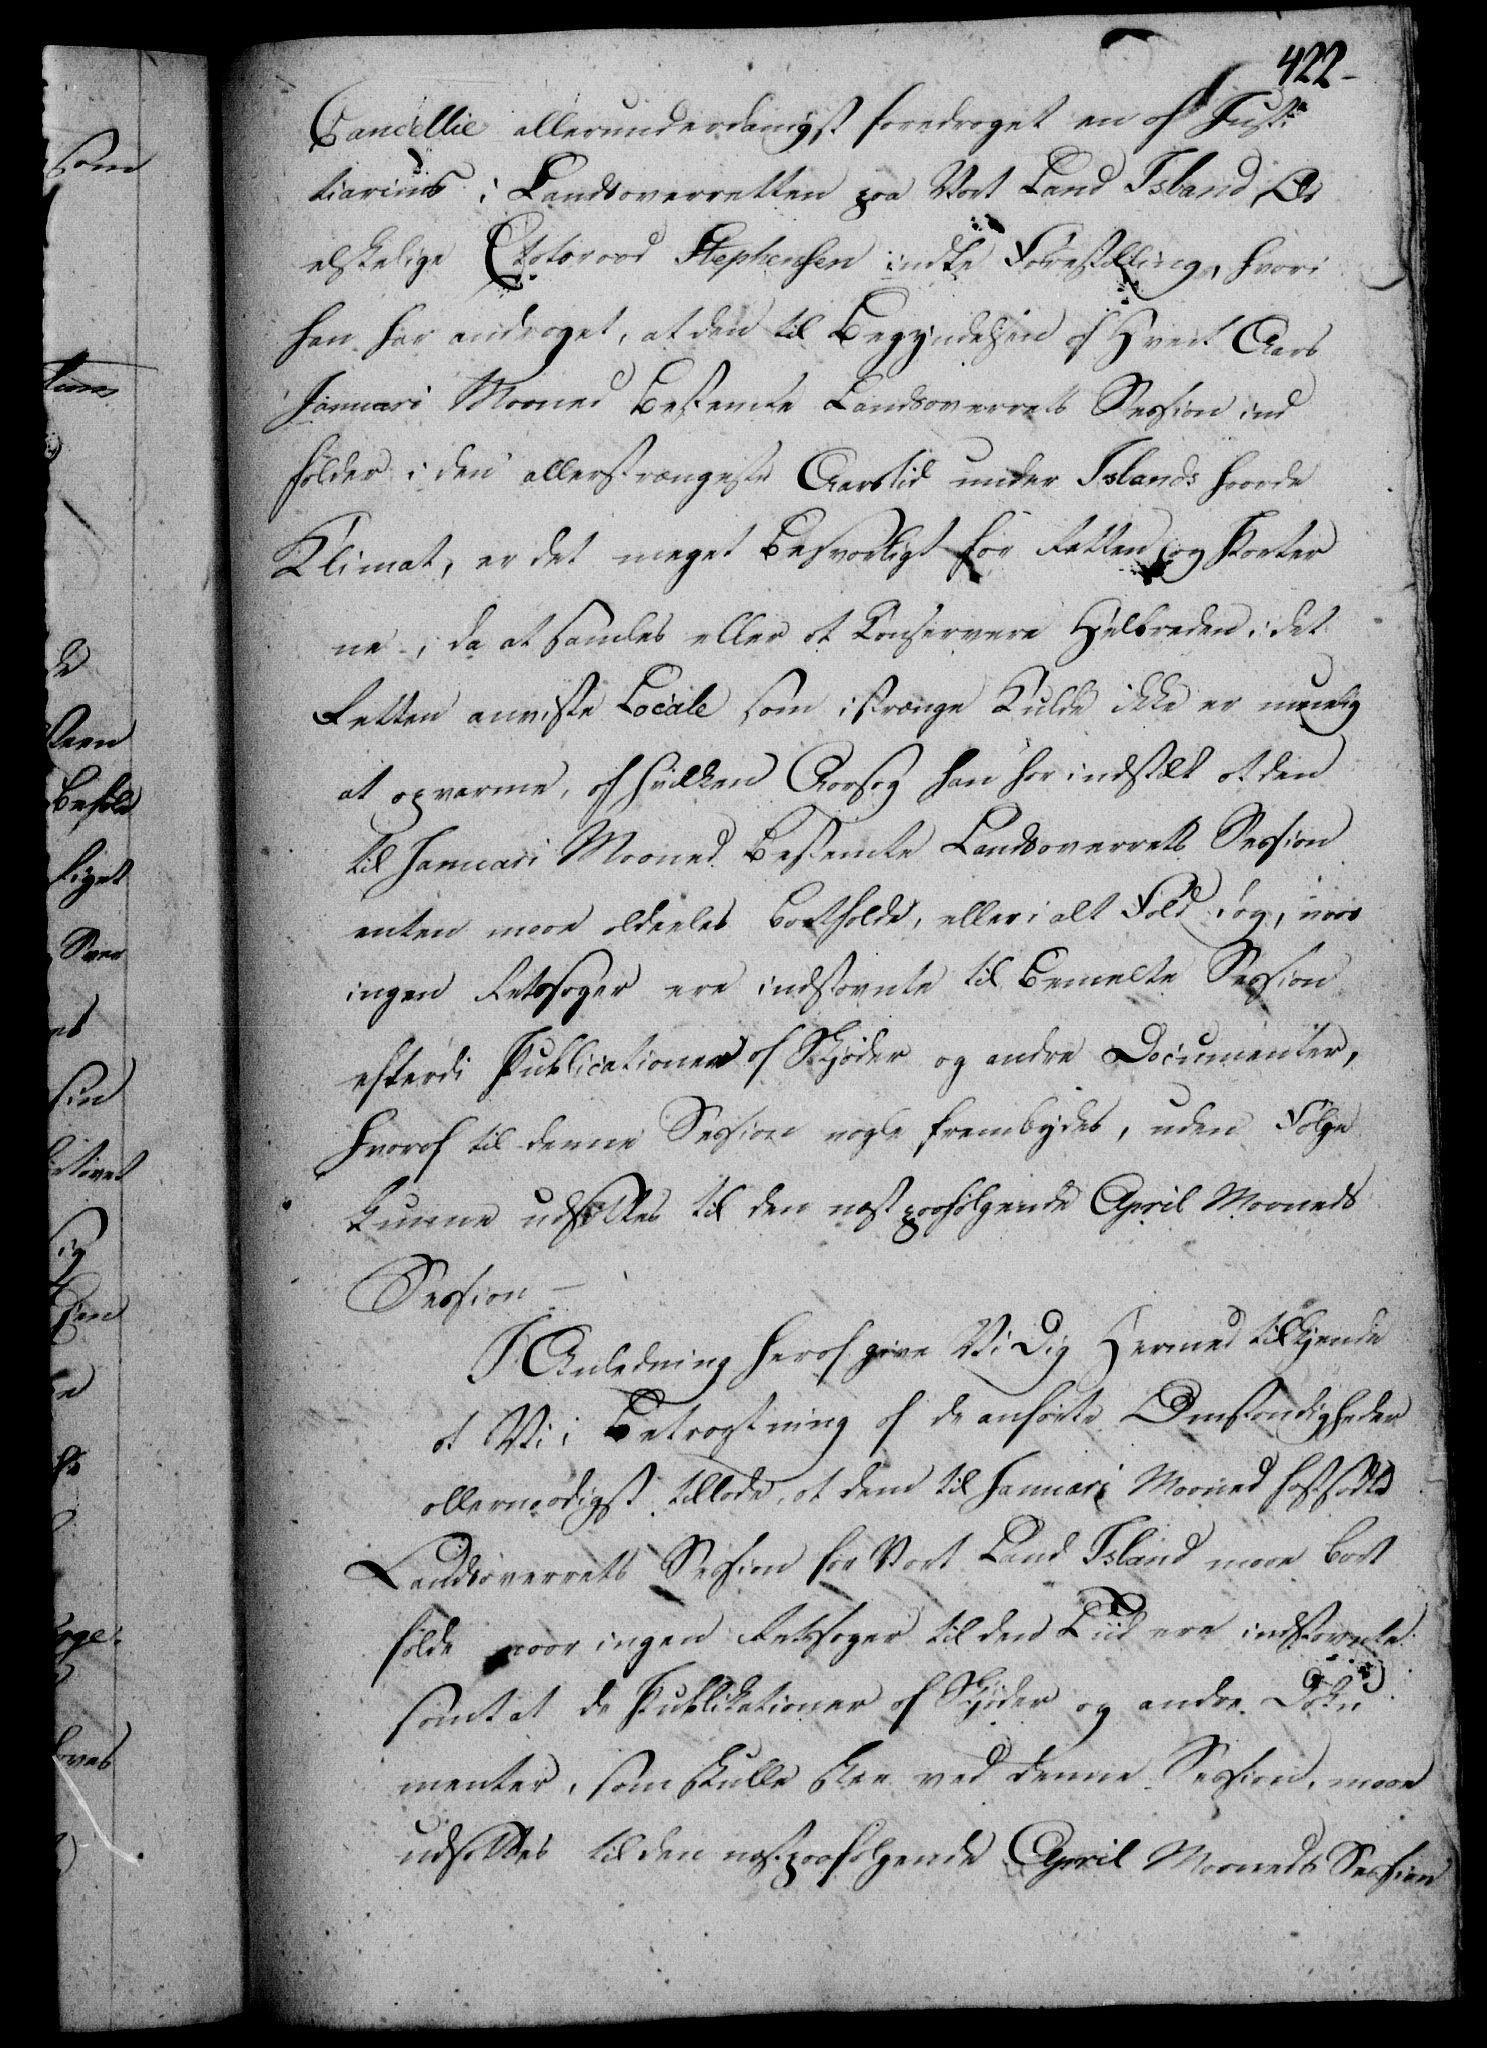 422-
Cancellie allerunderdanigst foredraget en af Justi
tiarius i Landsoverretten paa Vort Land Island Os
elskelige Etatsraad Stephensen indk Forestilling, hvori
han har andraget, at den til Begyndelsen af Hvert Aars
Januari Maaned bestemte Landsoverrets Session ind
falder i den allerstrængeste Aarstid under Islands haarde
Klimat, er det meget besværligt for Retten og Parter
ne, da at samles eller at Conservere Helbreden i det
Retten anviste Locale som i strænge Kulde ikke er muelig
at opvarme, af hvilken Aarsag han har indstilt at den
til Januari Maaned bestemte Landsoverrets Session
enten maae aldeeles bortfalde, eller i alt Fald da, naar
ingen Retssager ere indstævnte til bemelte Session
efterdi Publicationer af Skjøder og andre Documenter,
hvoraf til denne Session nogle frembydes, uden Følge
kunne udsættes til den næst paafølgende April Maaneds
Session –
I Anledning heraf give Vi Dig Hermed tilkjende
at Vi i Betragtning af de anførte Omstændigheder
allernaadigst tillade, at den til Januari Maaned fastsadte
Landsoverrets Session for Vort Land Island maae bort
falde naar ingen Retssager til den Tiid ere indstævnte
samt at de Publikationer af Skjøder og andre Doku
menter, som skulle skee ved denne Session, maae
udsættes til den næstpaafølgende April Maaneds Session